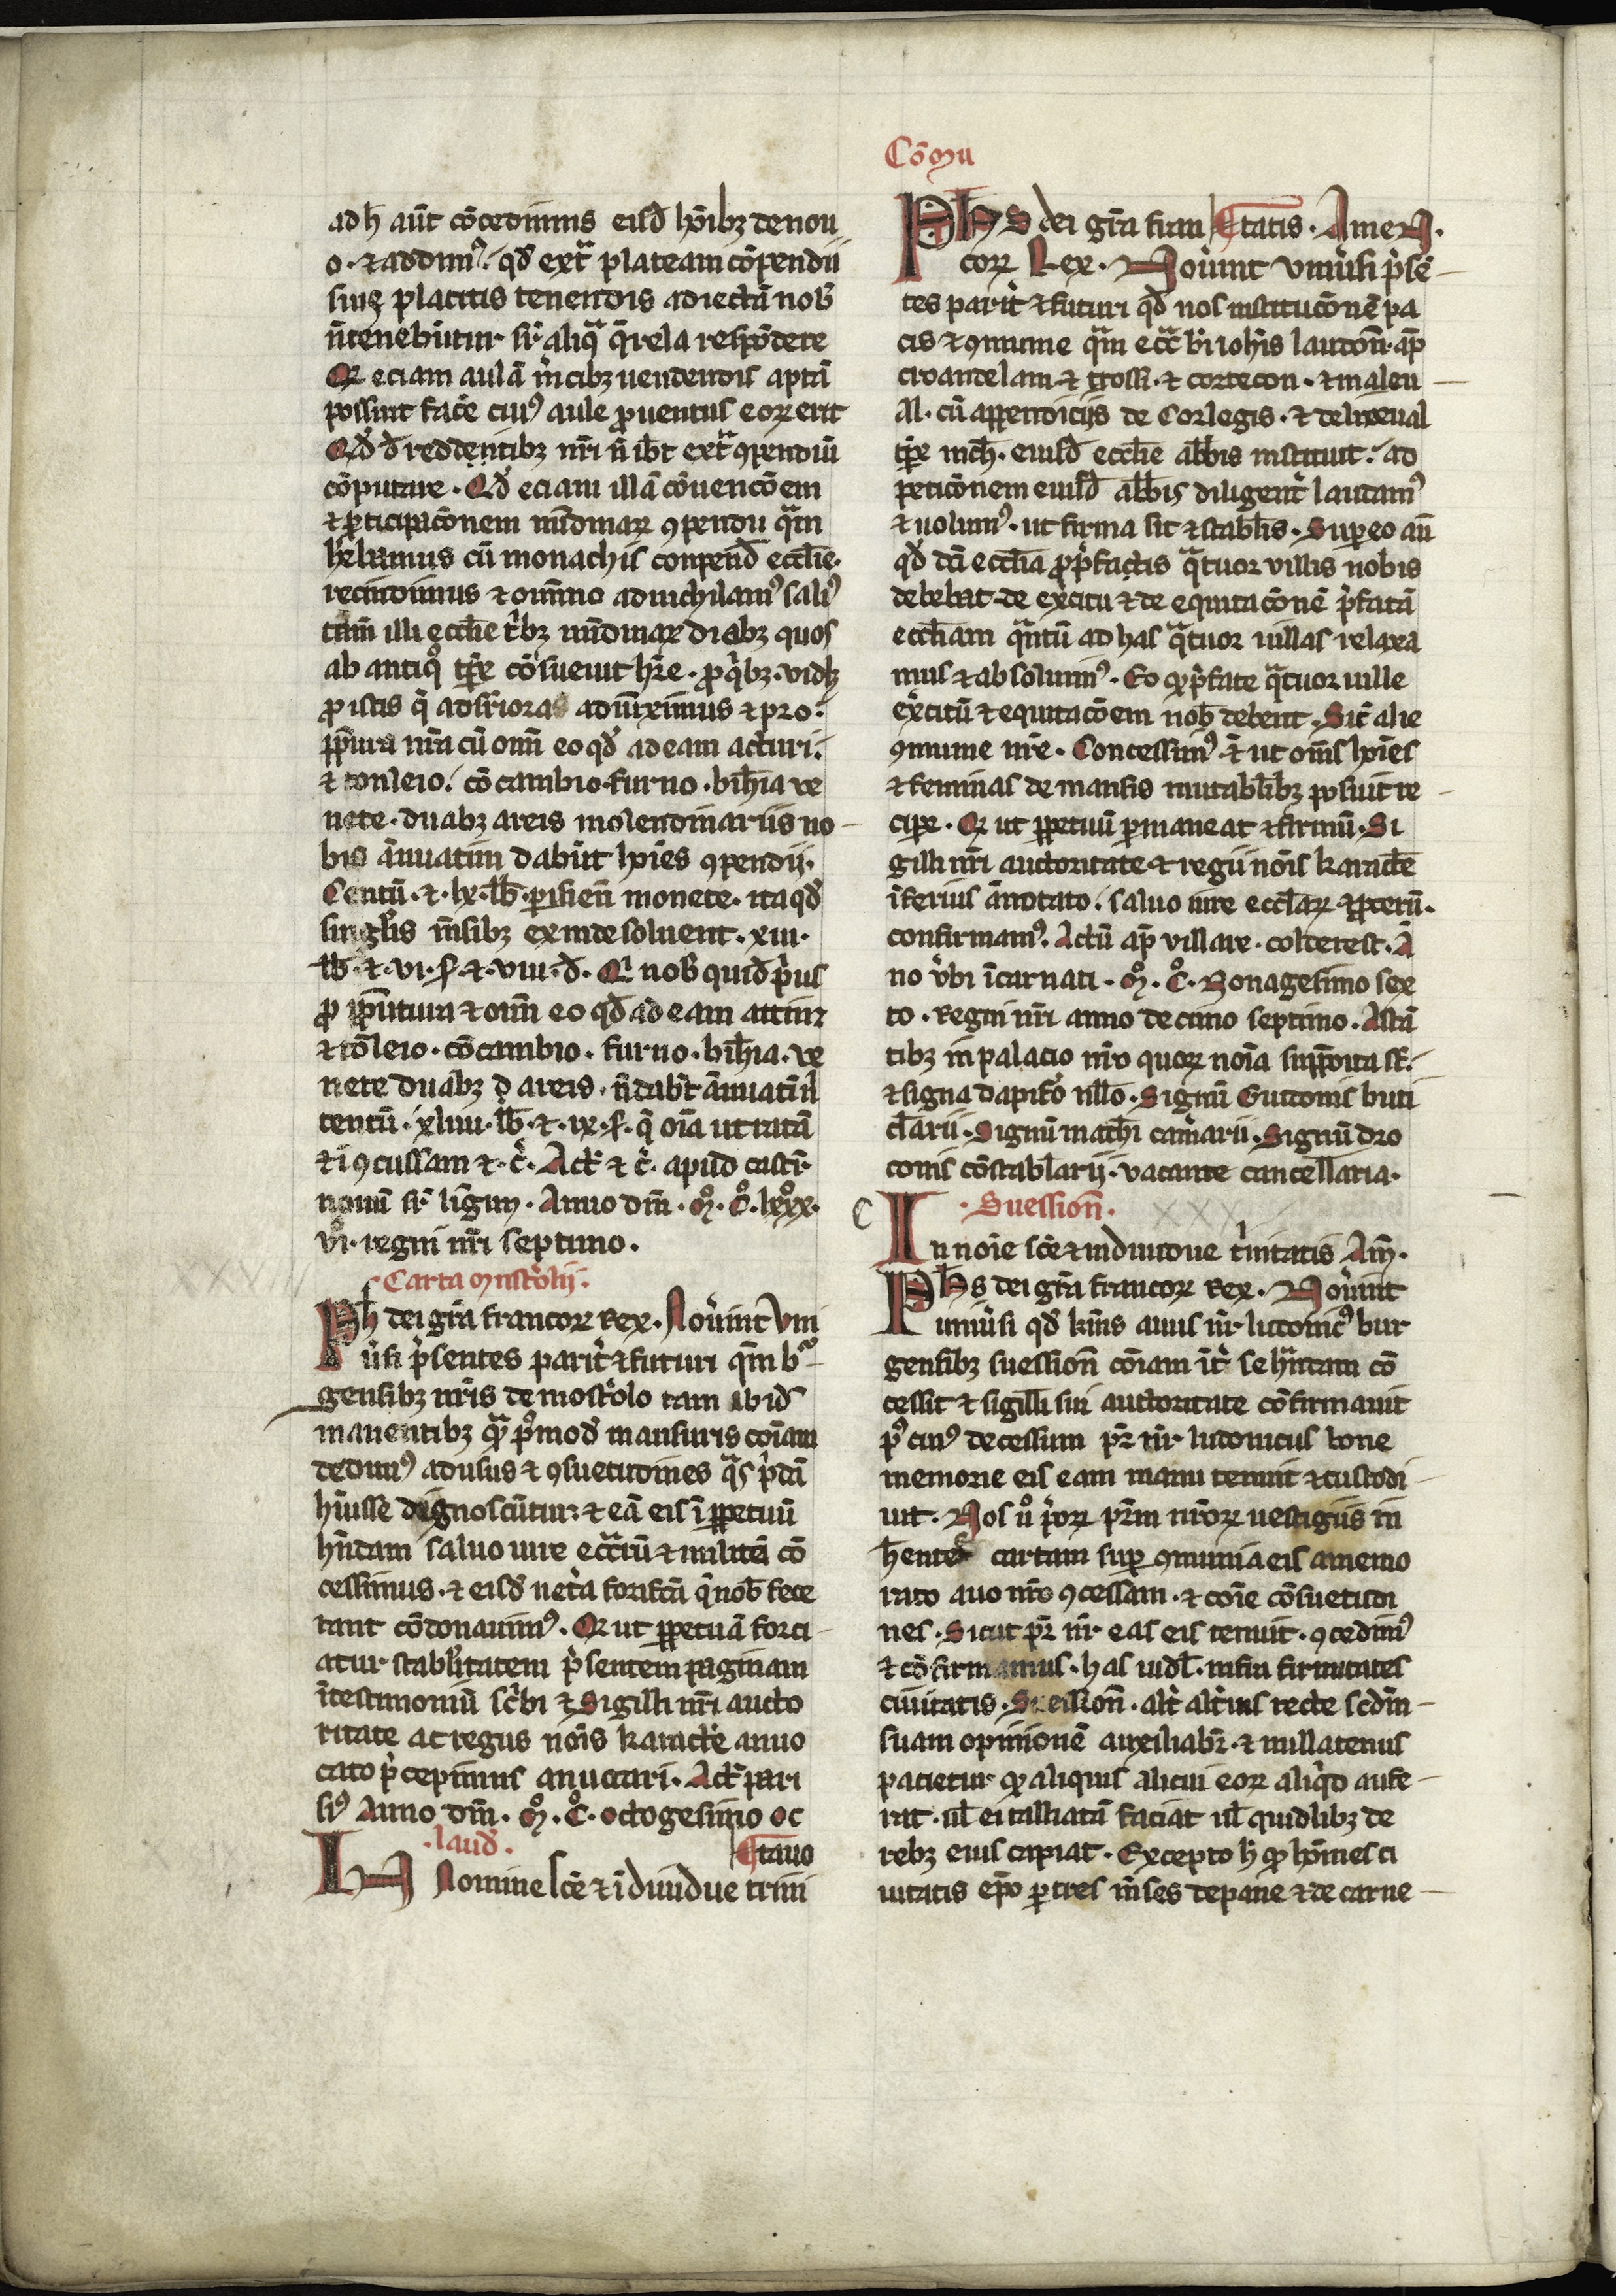 ad h̄ aūt cōcedimus eisd̄ hōībꝫ de nou
o · ⁊ addim᷒ · qd̄ extᷓ plateam cōpendii
suiꝫ placitis tenendis adiectā nob̄
n̄ tenebūtur sr̄ aliqᷓ q̄rela respōdere
Et eciam aulā m̄cibꝫ uendendis aptā
possint fac̄e cui᷒ aule ꝓuentus eoꝝ erit
Qd̄ d̄ redd̄entibꝫ nr̄i n̄ ib̄t extᷓ ꝯpendiū
cōputare · Qd̄ eciam illā cōuencōem
⁊ ꝑticipacōnem nūdinaꝝ ꝯpendii qᷓm
hēbamus cū monachis conpend̄ eccl̄ie ·
recindimus ⁊ oīno adnichilam᷒ sal᷒
tam̄ illi eccl̄ie t̄bꝫ nūdinaꝝ diebꝫ quos
ab antiq̊ tꝑe cōsueuit hr̄e · ꝓ q̄bꝫ · vidꝫ
ꝓ istis q̄ adsc̄iora adiūximus ⁊ pro ·
ꝓp̄itura nr̄a cū om̄ eo qd̄ ad eam act̄uri ·
⁊ tonleio · cō cambio · furno · bih̄ia ve
nete · duabꝫ areis molendinariis no
bis ānuatim dabūt hōies ꝯpendij ·
Centū · ⁊ · lx · lb̄ · ꝑisien̄ monete · ita qd̄
singl̄is m̄sibꝫ exinde soluent · xiii ·
lb̄ · ⁊ · vi · ſ · ⁊ · viii · d̄ · Et nob̄ quid̄ p̄us
ꝓ ꝓp̄itura ⁊ om̄ eo qd̄ ad eam attinꝫ
⁊ tōleio · cōcambio · furno · bih̄ia · ve
nete duabꝫ ꝺ areis · n̄ dabt̄ ānuatin̄
centū · xliiii · lb̄ · ⁊ · ix · ſ · q̄ oīa ut ratā
⁊ īꝯcussam ⁊ · c̄ · Act̄ ⁊ c̄ · apud castr̄
nouū sr̄ liḡim · Anno dn̄i · m̊ · c̊ · lxxx ·
vi̊ · regni nr̄i septimo ·
· Carta mst̄olij ·
Ph̄ dei gr̄a francoꝝ Rex · Nou̇int Vni
ūsi p̄sentes parit̄ ⁊ futuri qm̄ b᷒
gensibꝫ nr̄is de most̄olo tam ibid̄
manentibꝫ qᷓ p̄mod̄ mansuris coīam
dedim᷒ ad usus ⁊ ꝯsuetudines qᷓs p̄dcā
hūisse dignoscūtur · ⁊ eā eis ī ꝑpetuū
hn̄dam saluo iure eccᷓꝝ ⁊ militū cō
cessimus · ⁊ eisd̄ uet̄a forifcā q̄ nob̄ fece
rant cōdonauim᷒ · Et ut ꝑpetuā forci
atur stabl̄itatem p̄sentem paginam
ī testimoniū sc̄bi ⁊ Sigilli nr̄i aucto
ritate ac regus nōis karact̄e anno
tato p̄cepimus anuctari · Act̄ pari
si᷒ Anno dn̄i · m̊ · c̊ · octogesimo oc
· laud̄ · ctauo
IN Nomine sc̄e ⁊ īdiuidue trini
Cōmu
Phs dei gr̄a fran ctatis · Amen ·
coꝝ Rex · Nou̇int vniu̇si p̄sē
tes parit̄ ⁊ futuri qd̄ nos institucōnē pa
cis ⁊ ꝯmune qᷓm ecc̄ b̄i ioh̄is laudōn̄ · ap̄
croandelam ⁊ trossi · ⁊ cortecon · ⁊ maleu
al · cū appendicijs de Corlegis · ⁊ delneual
tꝑe mch̄ · eiusd̄ eccl̄ie abb̄is instituit · ad
peticōnem eiusd̄ abb̄is diligent̄ laudam᷒
⁊ uolum᷒ · ut firma sit ⁊ stabl̄is · Super eo aū
qd̄ dcā eccl̄ia ꝓ p̄factis qᷓtuor villis nobis
debebat de exc̄itu ⁊ de equitacōnē p̄fatā
eccl̄iam qᷓntū ad has qᷓtuor uillas relaxa
mus ⁊ absoluim᷒ · Eo ꝙ p̄fate qᷓtuor uille
exc̄itū ⁊ equitacōem nob̄ debent · Sic̄ alie
ꝯmune nr̄e · Concessim᷒ · ⁊ ut om̄s hōies
⁊ feminas de mansis mutabl̄ibꝫ possint re
cipe · Et ut ꝑpetuū ꝑmaneat ⁊ firmū · Si
gilli nr̄i auctoritate ⁊ regii nōis karacte
īferius ānotato · saluo iure eccl̄aꝝ ⁊ ꝓcerū ·
confirmam᷒ · Actū ap̄ villare · colderest · A
no v̄bi īcarnati · m̊ · c̊ · Nonagesimo sex
to · Regni nr̄i anno decimo septimo · Astā
tibꝫ in palacio nr̄o quoꝝ noīa suꝑposita st̄ ·
⁊ signa dapifo᷒ nllo · Signū Guidonis buti
cl̄arii · Signū mathi cam̄arii · Signū dro
conis cōstabl̄arij · vacante cancellaria ·
· Suession̄ · XXX
In noīe sc̄e ⁊ indiuidue t̄initatis Am̄ ·
Phs dei gr̄a francoꝝ Rex · Nou̇int
uniu̇si qd̄ kīns auus nr̄ ludouic᷒ bur
gensibꝫ suession̄ cōiam īt̄ se hn̄dam cō
cessit ⁊ sigilli sui auctoritate cōfirmauit
p᷒ cui᷒ decessum pr̄ nr̄ ludouicus bone
memorie eis eam manu tenuit ⁊ custodi
uit · Nos ů p̄oꝝ pr̄m nr̄oꝝ uestigiis in
h̄entes cartam suꝑ ꝯmunia eis amemo
rato auo nr̄o ꝯcessam · ⁊ coīe cōsuetudi
nes · Sicut pr̄ nr̄ eas eis tenuit · ꝯcedim᷒
⁊ cōfirmamus · has uidl̄ · infra firmitates
ciuitatis · Suession̄ · alt̄ alt̄ius recte scdm̄
suam opinionē auxiliabr̄ · ⁊ nullatenus
pacietur ꝙ aliquis alicui eoꝝ aliq̄d aufe
rat · ul̄ ei talliatā faciat ul̄ quidlibꝫ de
rebꝫ eius capiat · Excepto h̄ ꝙ hōmes ci
uitatis ep̄o ꝑ tres m̄ses de pane ⁊ de carne